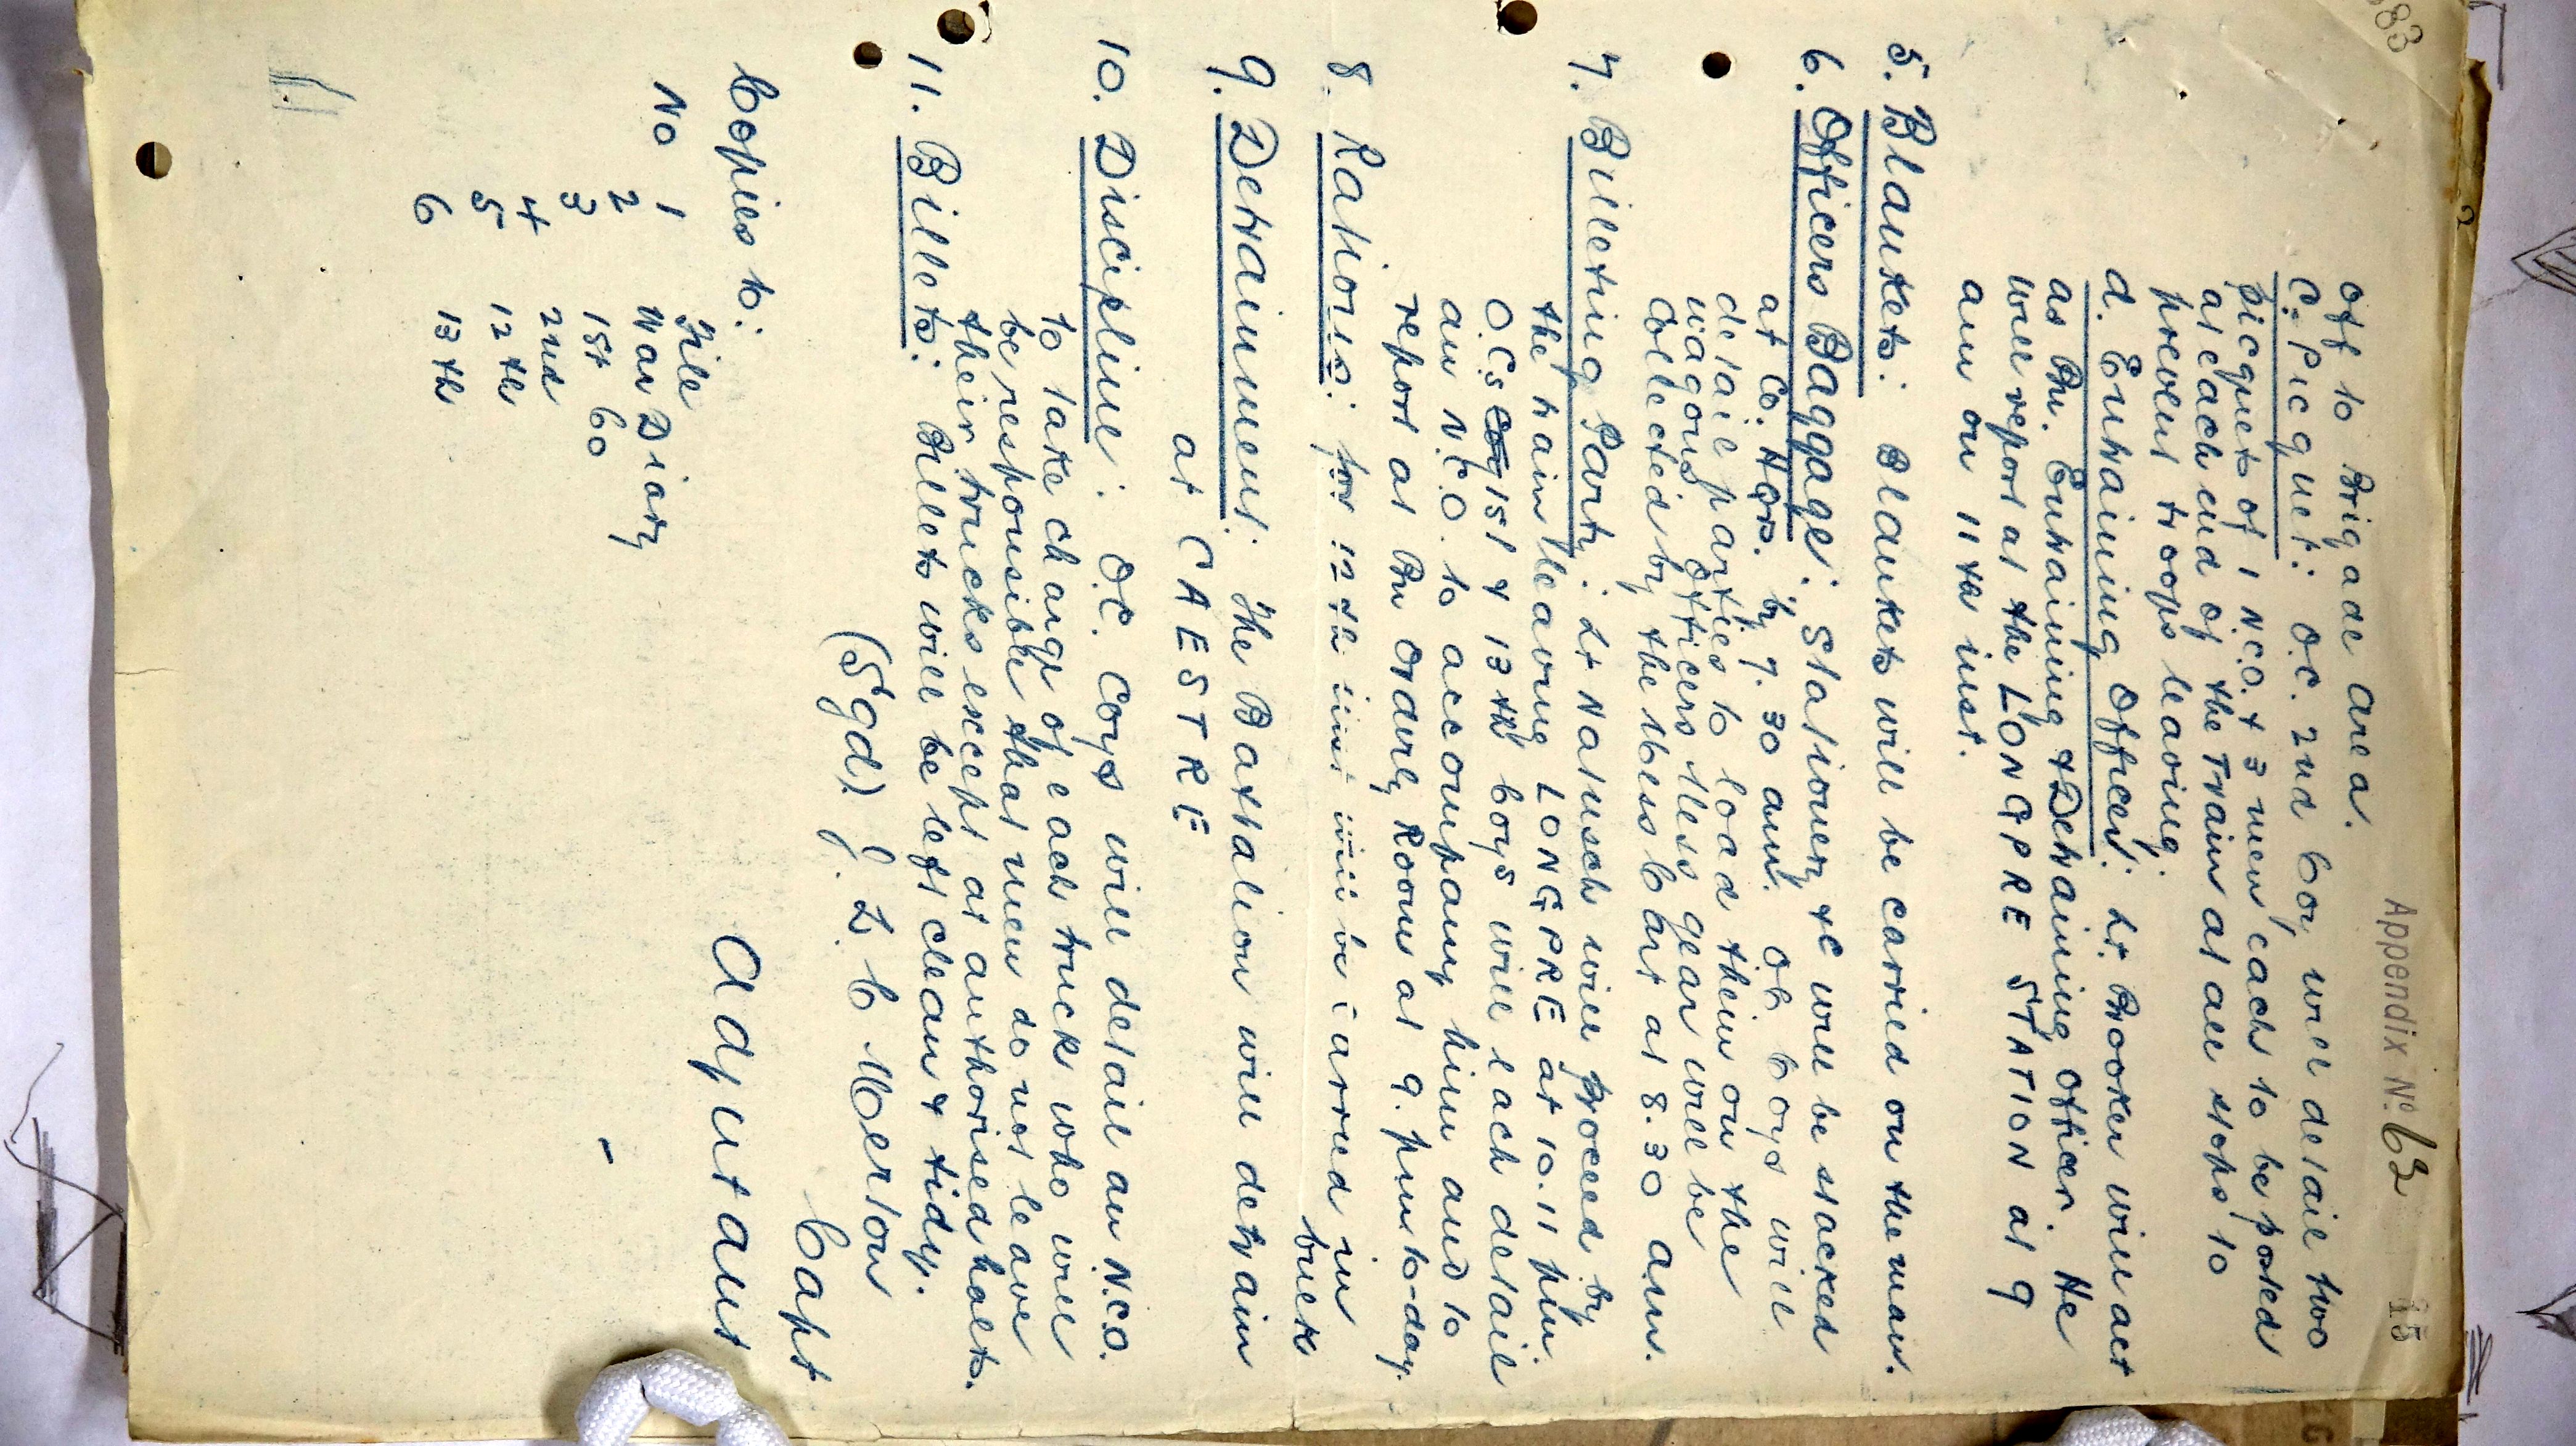 383
2
Appendix No. 62
15
off to Brigade area.
c. Picquet: O.C. 2nd Coy will detail two
picquets of 1 N.C.O. & 3 men each to be posted
at each end of the Train at all stops to
prevent troops leaving.
d. Entraining Officer: Lt. Brooker will act
as Bn. Entraining & Detraining officer. He
will report at the LONGPRE STATION at 9
am on 11th inst.
5. Blankets: Blankets will be carried on the man.
6. Officers Baggage: Stationery &c will be stacked
at Co. Hqrs. by 7.30 am. OC Coys will
detail parties to load them on the
wagons Officers Mess gear will be
collected by the Mess Cart at 8.30 am.
7. Billeting Party: Lt Natusch will proceed by
the train leaving LONGPRE at 10.11 pm
O.Cs 1st & 13th Coys will each detail
an N.C.O. to accompany him and to
report at Bn Orderly Room at 9. pm to-day.
8. Rations: for 12th inst will be carried in
bulk
9. Detrainment: The Battalion will detrain
at CAESTRE
10. Discipline: O.C. Coys will detail an N.C.O.
to take charge of each truck who will
be responsible that men do not leave
their trucks except at authorised halts.
11. Billets: Billets will be left clean & tidy.
(Sgd) J. L. C Merton
Capt
Adjutant
Copies to:
No 1 File
2 War Diary
3 1st Co
4 2nd
5 12th
6 13th